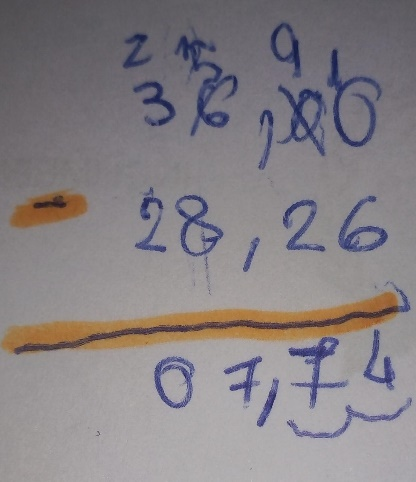 2 15 9 1
36,00
- 28,26
07,74